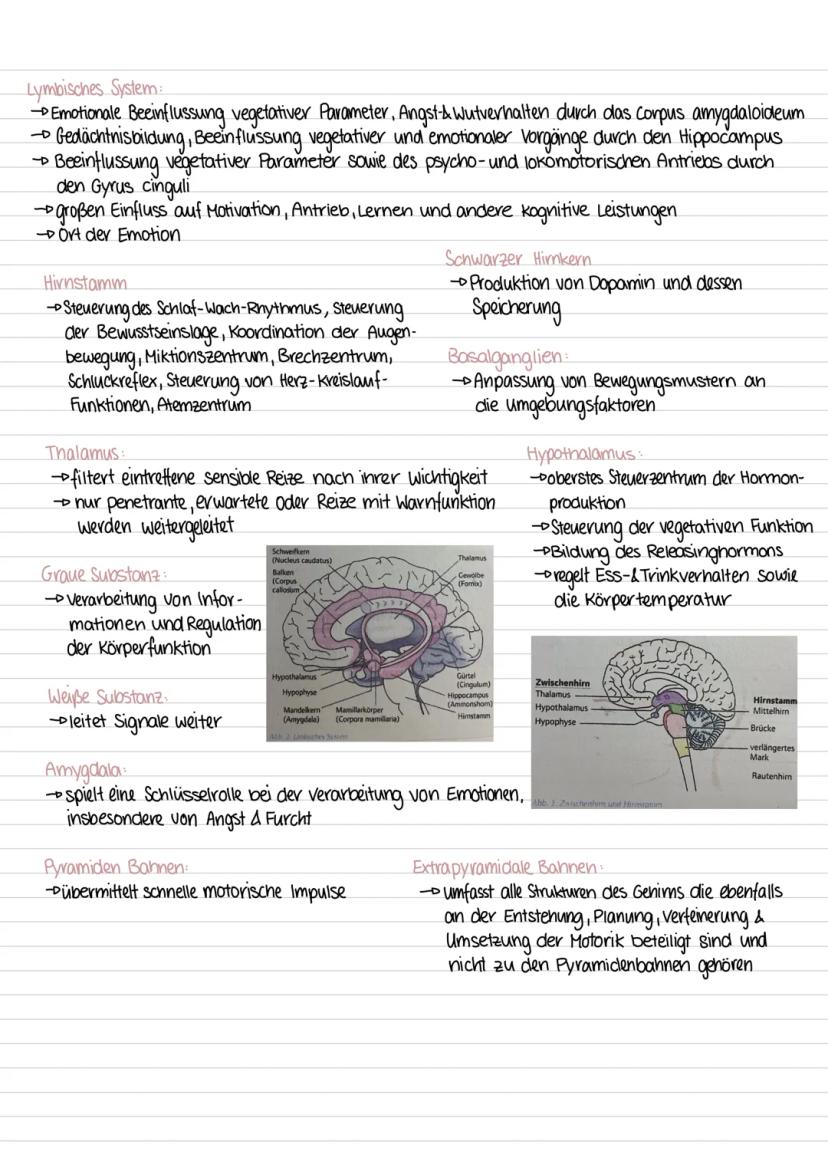 Lymbisches System:
→ Emotionale Beeinflussung vegetativer Parameter, Angst-& Wutverhalten durch das Corpus amygdaloideum
→ Gedächtnisbildung, Beeinflussung vegetativer und emotionaler Vorgänge durch den Hippocampus
→ Beeinflussung vegetativer Parameter sowie des psycho- und lokomotorischen Antriebs durch
den Gyrus cinguli
→ großen Einfluss auf Motivation, Antrieb, Lernen und andere kognitive Leistungen
→ Ort der Emotion
Hirnstamm
→ Steuerung des Schlaf-Wach-Rhythmus, Steuerung
der Bewusstseinslage, Koordination der Augen-
bewegung, Miktionszentrum, Brechzentrum,
Schluckreflex, Steuerung von Herz-Kreislauf-
Funktionen, Atemzentrum
Schwarzer Hirnkern
→ Produktion von Dopamin und dessen
Speicherung
Basalganglien:
→ Anpassung von Bewegungsmustern an
die Umgebungsfaktoren
Thalamus:
→ filtert eintreffene sensible Reize nach ihrer Wichtigkeit
→ nur penetrante, erwartete oder Reize mit Warnfunktion
werden weitergeleitet
Hypothalamus:
→ oberstes Steuerzentrum der Hormon-
produktion
→ Steuerung der vegetativen Funktion
→ Bildung des Releasinghormons
→ regelt Ess-& Trinkverhalten sowie
die Körpertemperatur
Graue Substanz:
→ Verarbeitung von Infor-
mationen und Regulation
der Körperfunktion
Weiße Substanz:
→ leitet Signale weiter
Schweifkern
(Nucleus caudatus)
Balken
(Corpus
callosum)
Thalamus
Gewölbe
(Fornix)
Hypothalamus
Hypophyse
Mandelkern
(Amygdala)
Mamillarkörper
(Corpora mamillaria)
Gürtel
(Cingulum)
Hippocampus
(Ammonshorn)
Hirnstamm
Abb. 2. Limbisches System
Zwischenhirn
Thalamus
Hypothalamus
Hypophyse
Hirnstamm
Mittelhirn
Brücke
verlängertes
Mark
Rautenhirn
Abb. 3. Zwischenhirn und Hirnstamm
Amygdala:
→ spielt eine Schlüsselrolle bei der Verarbeitung von Emotionen,
insbesondere von Angst & Furcht
Pyramiden Bahnen:
→ übermittelt schnelle motorische Impulse
Extrapyramidale Bahnen:
→ umfasst alle Strukturen des Gehirns die ebenfalls
an der Entstehung, Planung, Verfeinerung &
Umsetzung der Motorik beteiligt sind und
nicht zu den Pyramidenbahnen gehören